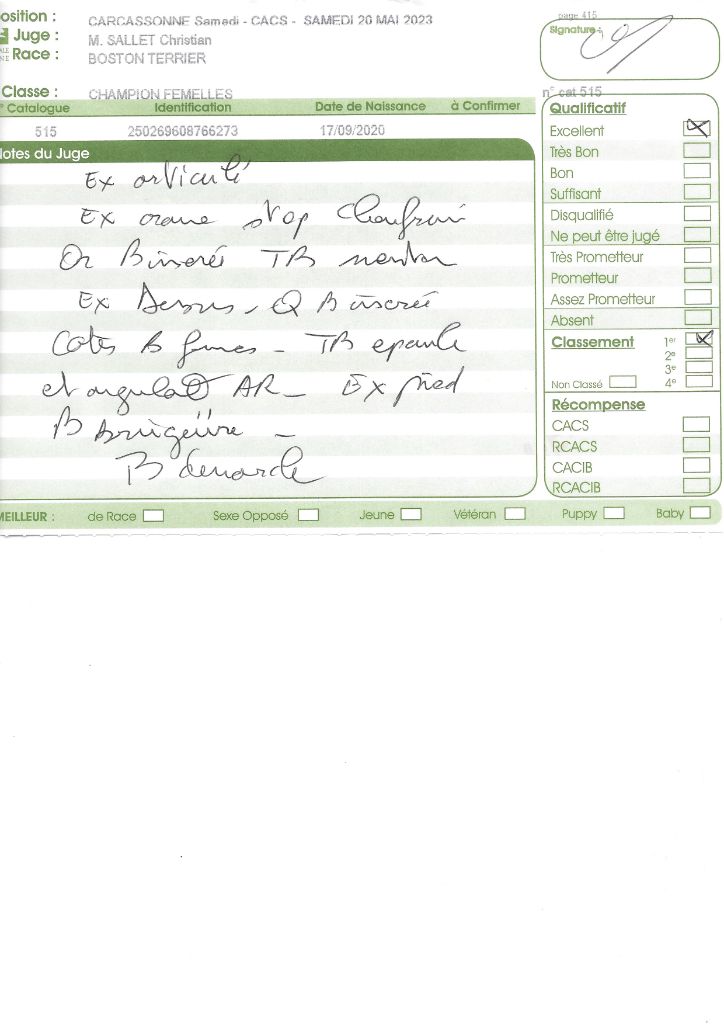 osition : CARCASSONNE Samedi - CACS - SAMEDI 20 MAI 2023
Juge : M. SALLET Christian
Race : BOSTON TERRIER
Classe : CHAMPION FEMELLES
page 415
Signature :
° Catalogue Identification Date de Naissance à Confirmer
515 250269608766273 17/09/2020
n° cat 515
Notes du Juge
Ex
Ex crane stop Chanfrein
Or B inserée TB menton
Ex Dessus - Q B inserée
Cotes B - TB epaule
et angulat° AR - Ex pied
B
B demarche
Qualificatif
Excellent
Très Bon
Bon
Suffisant
Disqualifié
Ne peut être jugé
Très Prometteur
Prometteur
Assez Prometteur
Absent
Classement 1er
2e
3e
Non Classé 4e
Récompense
CACS
RCACS
CACIB
RCACIB
MEILLEUR : de Race Sexe Opposé Jeune Vétéran Puppy Baby